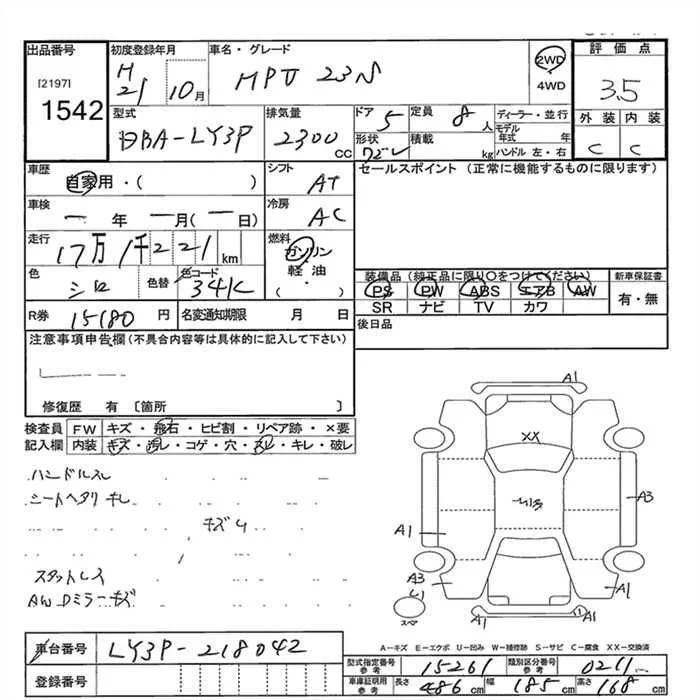 出品番号 初度登録年月 車名・グレード 評価点
[2197] H21 10月 MPV 23S 2WD 3.5
1542 4WD
型式 排気量 ドア 定員 ディーラー・並行 外装 内装
DBA-LY3P 2300cc 5 8人 モデル年式 年 C C
形状 ワゴン 積載 kg ハンドル 左・右
車歴 シフト セールスポイント (正常に機能するものに限ります)
自家用・( ) AT
車検 冷房
一年 一月(一日) AC
走行 燃料
17万1千221km ガソリン
軽油
・
( )
色 色替 色コード 装備品 (純正品に限り○をつけてください) 新車保証書
シロ 34K PS PW ABS エアB AW 有・無
SR ナビ TV カワ
R券 15180円 名変通知期限 月 日 後日品
注意事項申告欄(不具合内容等は具体的に記入して下さい)
修復歴 有 〔箇所 〕
検査員 FW キズ・飛石・ヒビ割・リペア跡・×要
記入欄 内装 キズ・汚レ・コゲ・穴・スレ・キレ・破レ
ハンドルスレ
シートヘタリ キレ
キズU
スタットレス
AW Dミラーキズ
A1
XX
A3
A1
A3
U1
A1
A1
スペア
A-キズ E-エクボ U-凹み W-補修跡 S-サビ C-腐食 XX-交換済
車台番号 LY3P-218042
登録番号
型式指定番号 参考 15261 類別区分番号 参考 0211
車庫証明用 参考 長さ 486cm 幅 185cm 高さ 168cm